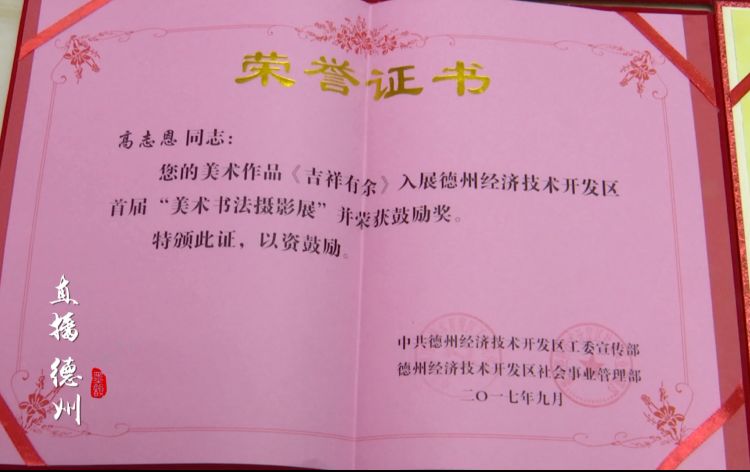 荣誉证书
高志恩 同志：
您的美术作品《吉祥有余》入展德州经济技术开发区
首届“美术书法摄影展”并荣获鼓励奖。
特颁此证，以资鼓励。
中共德州经济技术开发区工委宣传部
德州经济技术开发区社会事业管理部
二〇一七年九月
直播德州